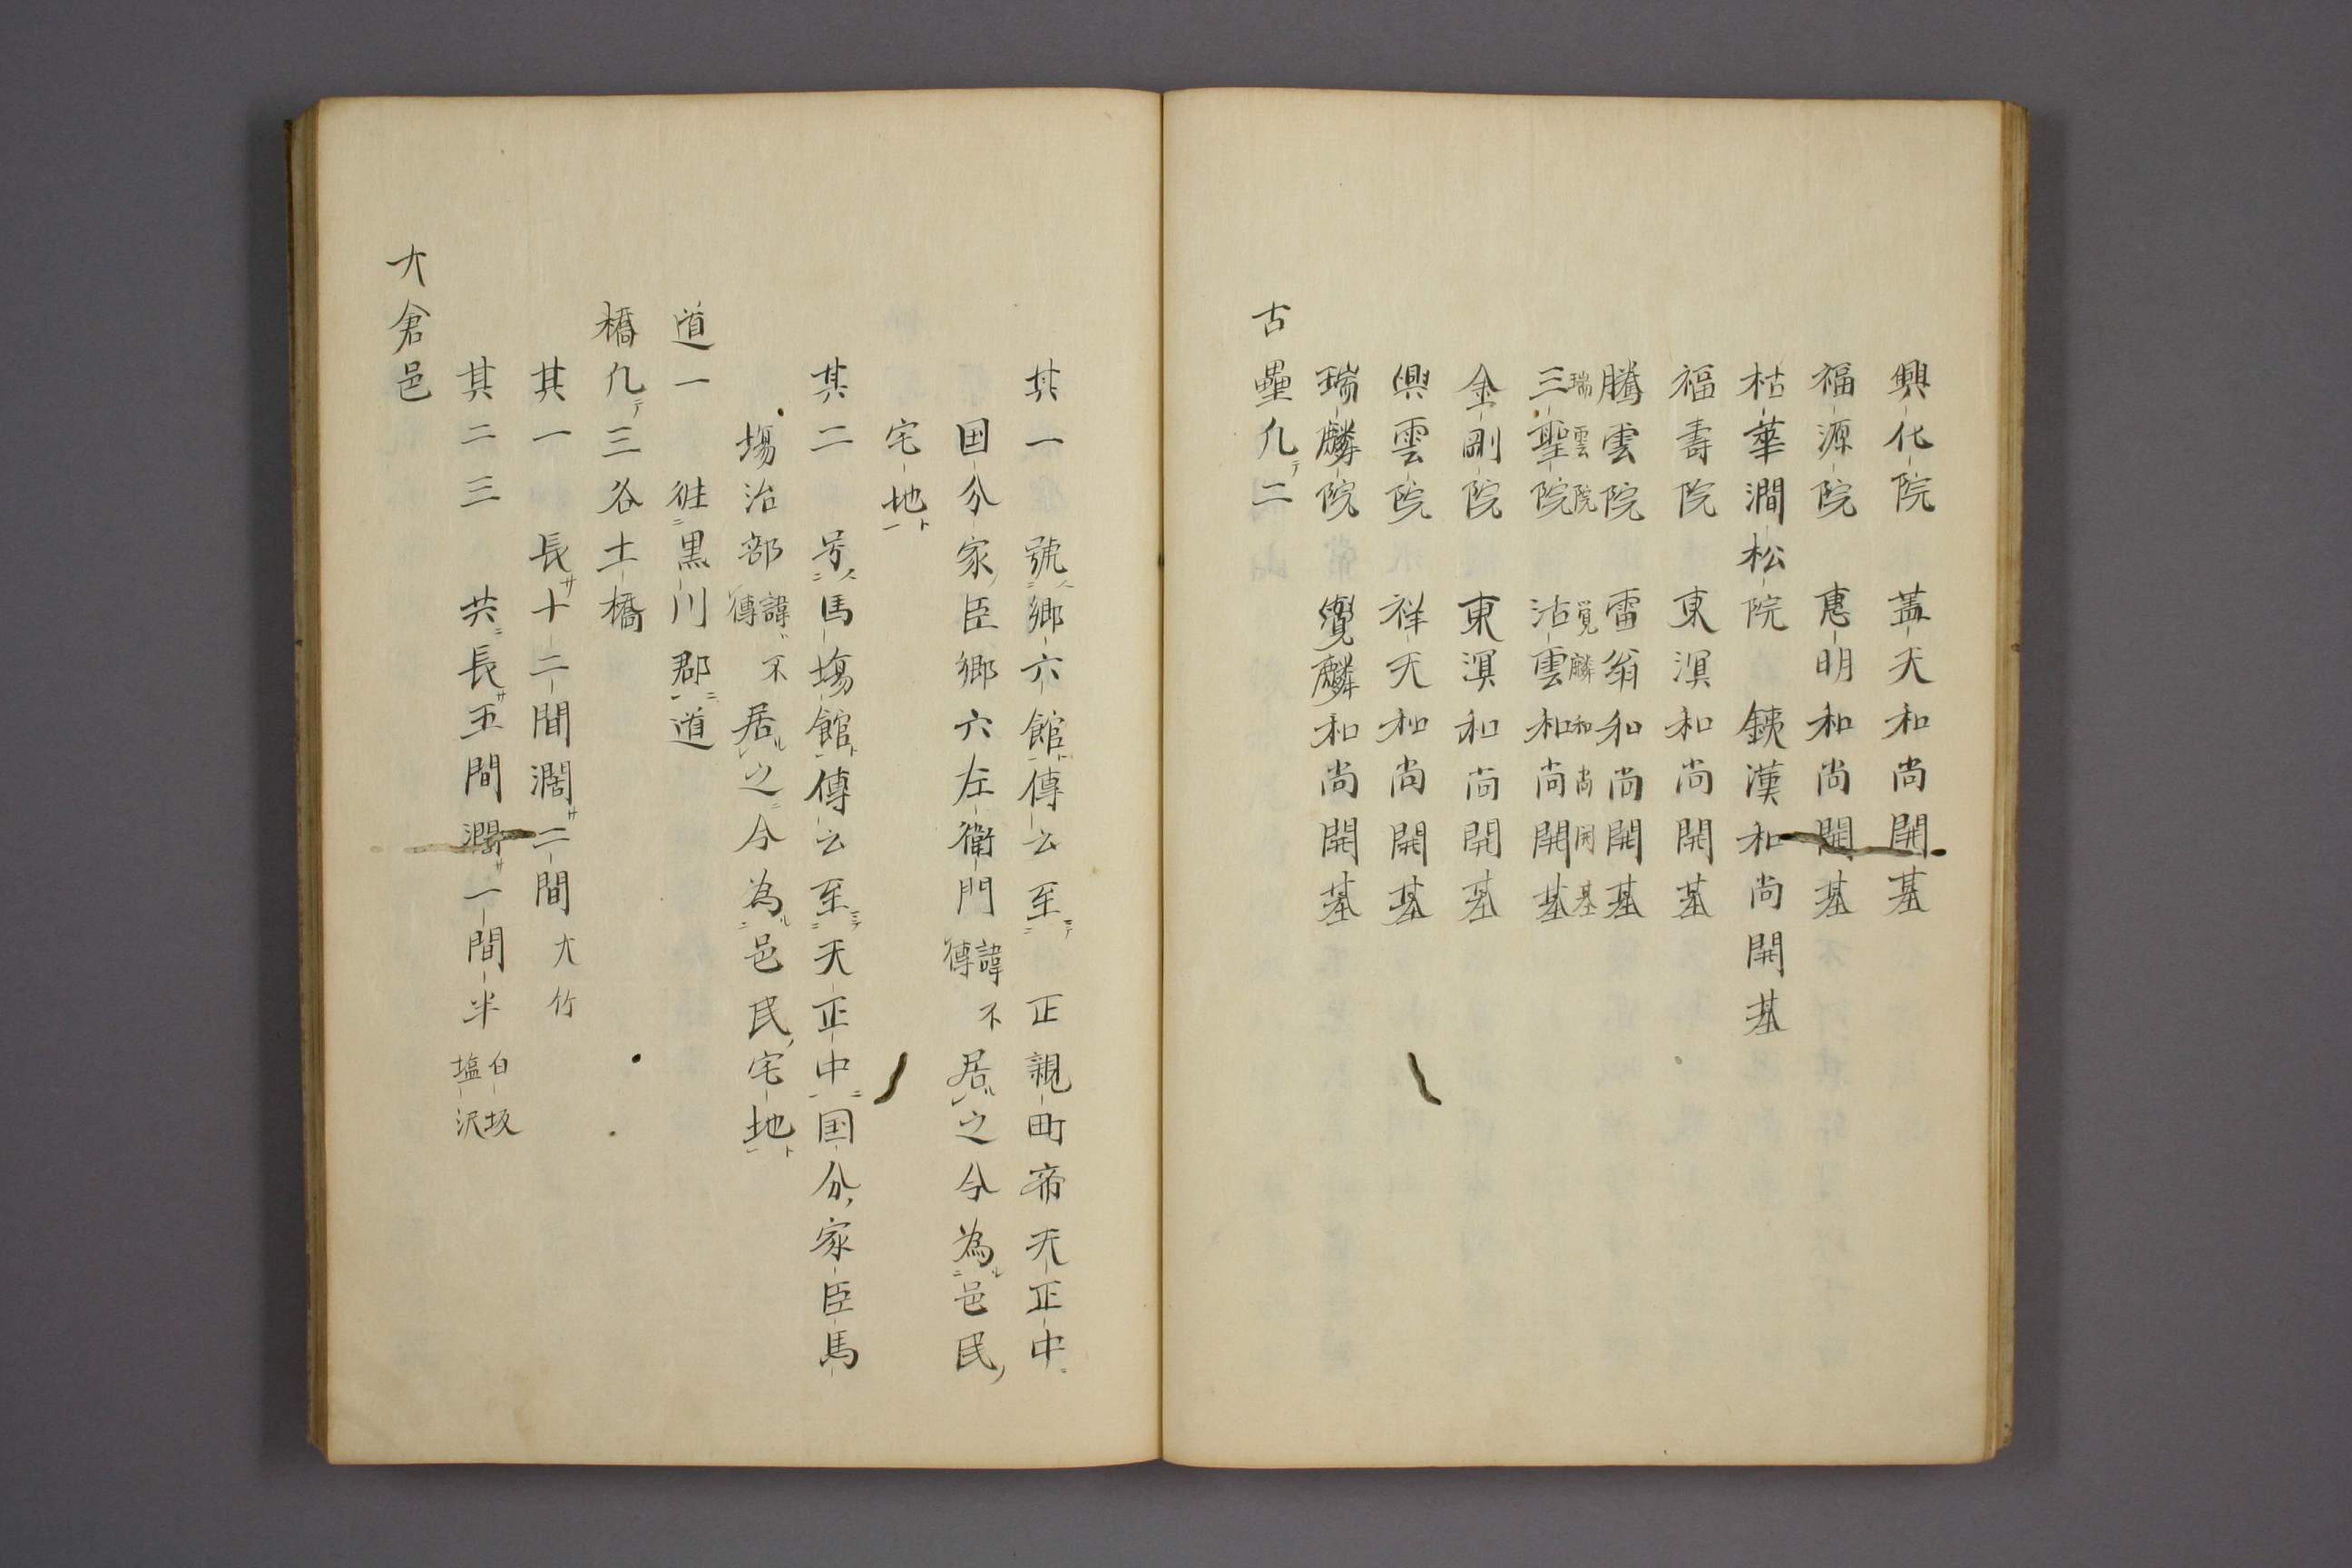 興化院　蓋天和尚開基
福源院　恵明和尚開基
枯華澗松院　銕漢和尚開基
福壽院　東溟和尚開基
騰雲院　雷翁和尚開基
瑞雲院　覚麟和尚開基
三聖院　沾雲和尚開基
金剛院　東溟和尚開基
興雲院　祥天和尚開基
瑞麟院　覺麟和尚開基
古壘凡テ二
其一　號ニ郷六館ト一傳云至ニミテ　正親町帝天正中ニ
国分家臣郷六左衛門諱不傳居ルレ之今為ルニ邑民ノ
宅地ト一
其二　号ニ馬場館ト一傳云至ニミテ天正中ニ一国分ノ家臣馬
場治部諱不傳居ルレ之ニ今為ルニ邑民ノ宅地ト一
道一　徃ニ黒川郡ニ一道
橋凡テ三谷土橋
其一　長サ十二間濶サ二間大竹
其二三　共ニ長サ五間濶サ一間半白坂塩沢
大倉邑